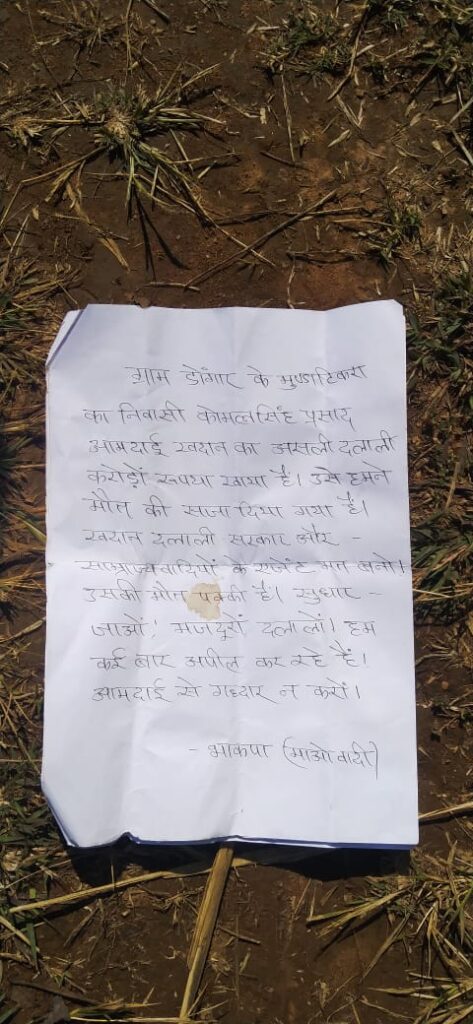 ग्राम डोंगार के मुण्डाटिकरा
का निवासी कोमलसिंह प्रसाद
आमदाई खदान का असली दलाली
करोड़ों रूपया खाया है। उसे हमने
मौत की सजा दिया गया है।
खदान दलाली सरकार और -
साम्राज्यवादियों के एजेंट मत बनो।
उसकी मौत पक्की है। सुधार -
जाओं! मजदूरों दलालों। हम
कई बार अपील कर रहे हैं।
आमदाई से गद्दार न करों।
- भाकपा (माओवादी)